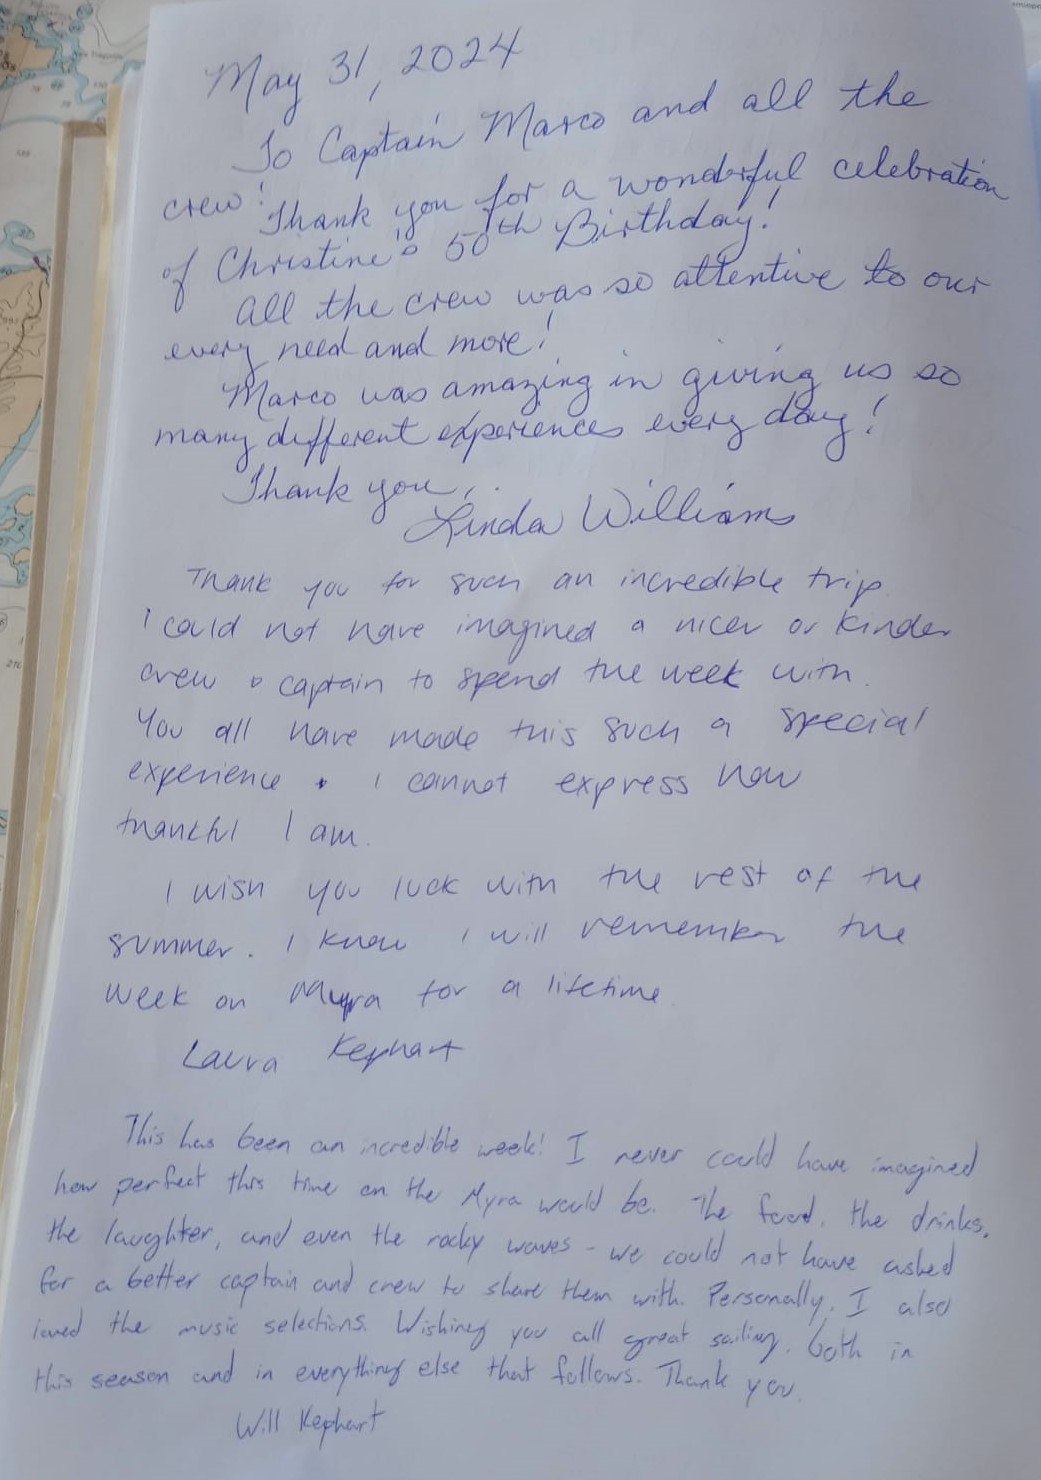 May 31, 2024
To Captain Marco and all the
crew! Thank you for a wonderful celebration
of Christine's 50th Birthday!
All the crew was so attentive to our
every need and more!
Marco was amazing in giving us so
many different experiences every day!
Thank you,
Linda Williams
Thank you for such an incredible trip.
I could not have imagined a nicer or kinder
crew & captain to spend the week with.
You all have made this such a special
experience & I cannot express how
thankful I am.
I wish you luck with the rest of the
summer. I know I will remember the
week on Myra for a lifetime.
Laura Kephart
This has been an incredible week! I never could have imagined
how perfect this time on the Myra would be. The food, the drinks,
the laughter, and even the rocky waves - we could not have asked
for a better captain and crew to share them with. Personally, I also
loved the music selections. Wishing you all great sailing, both in
this season and in everything else that follows. Thank you.
Will Kephart